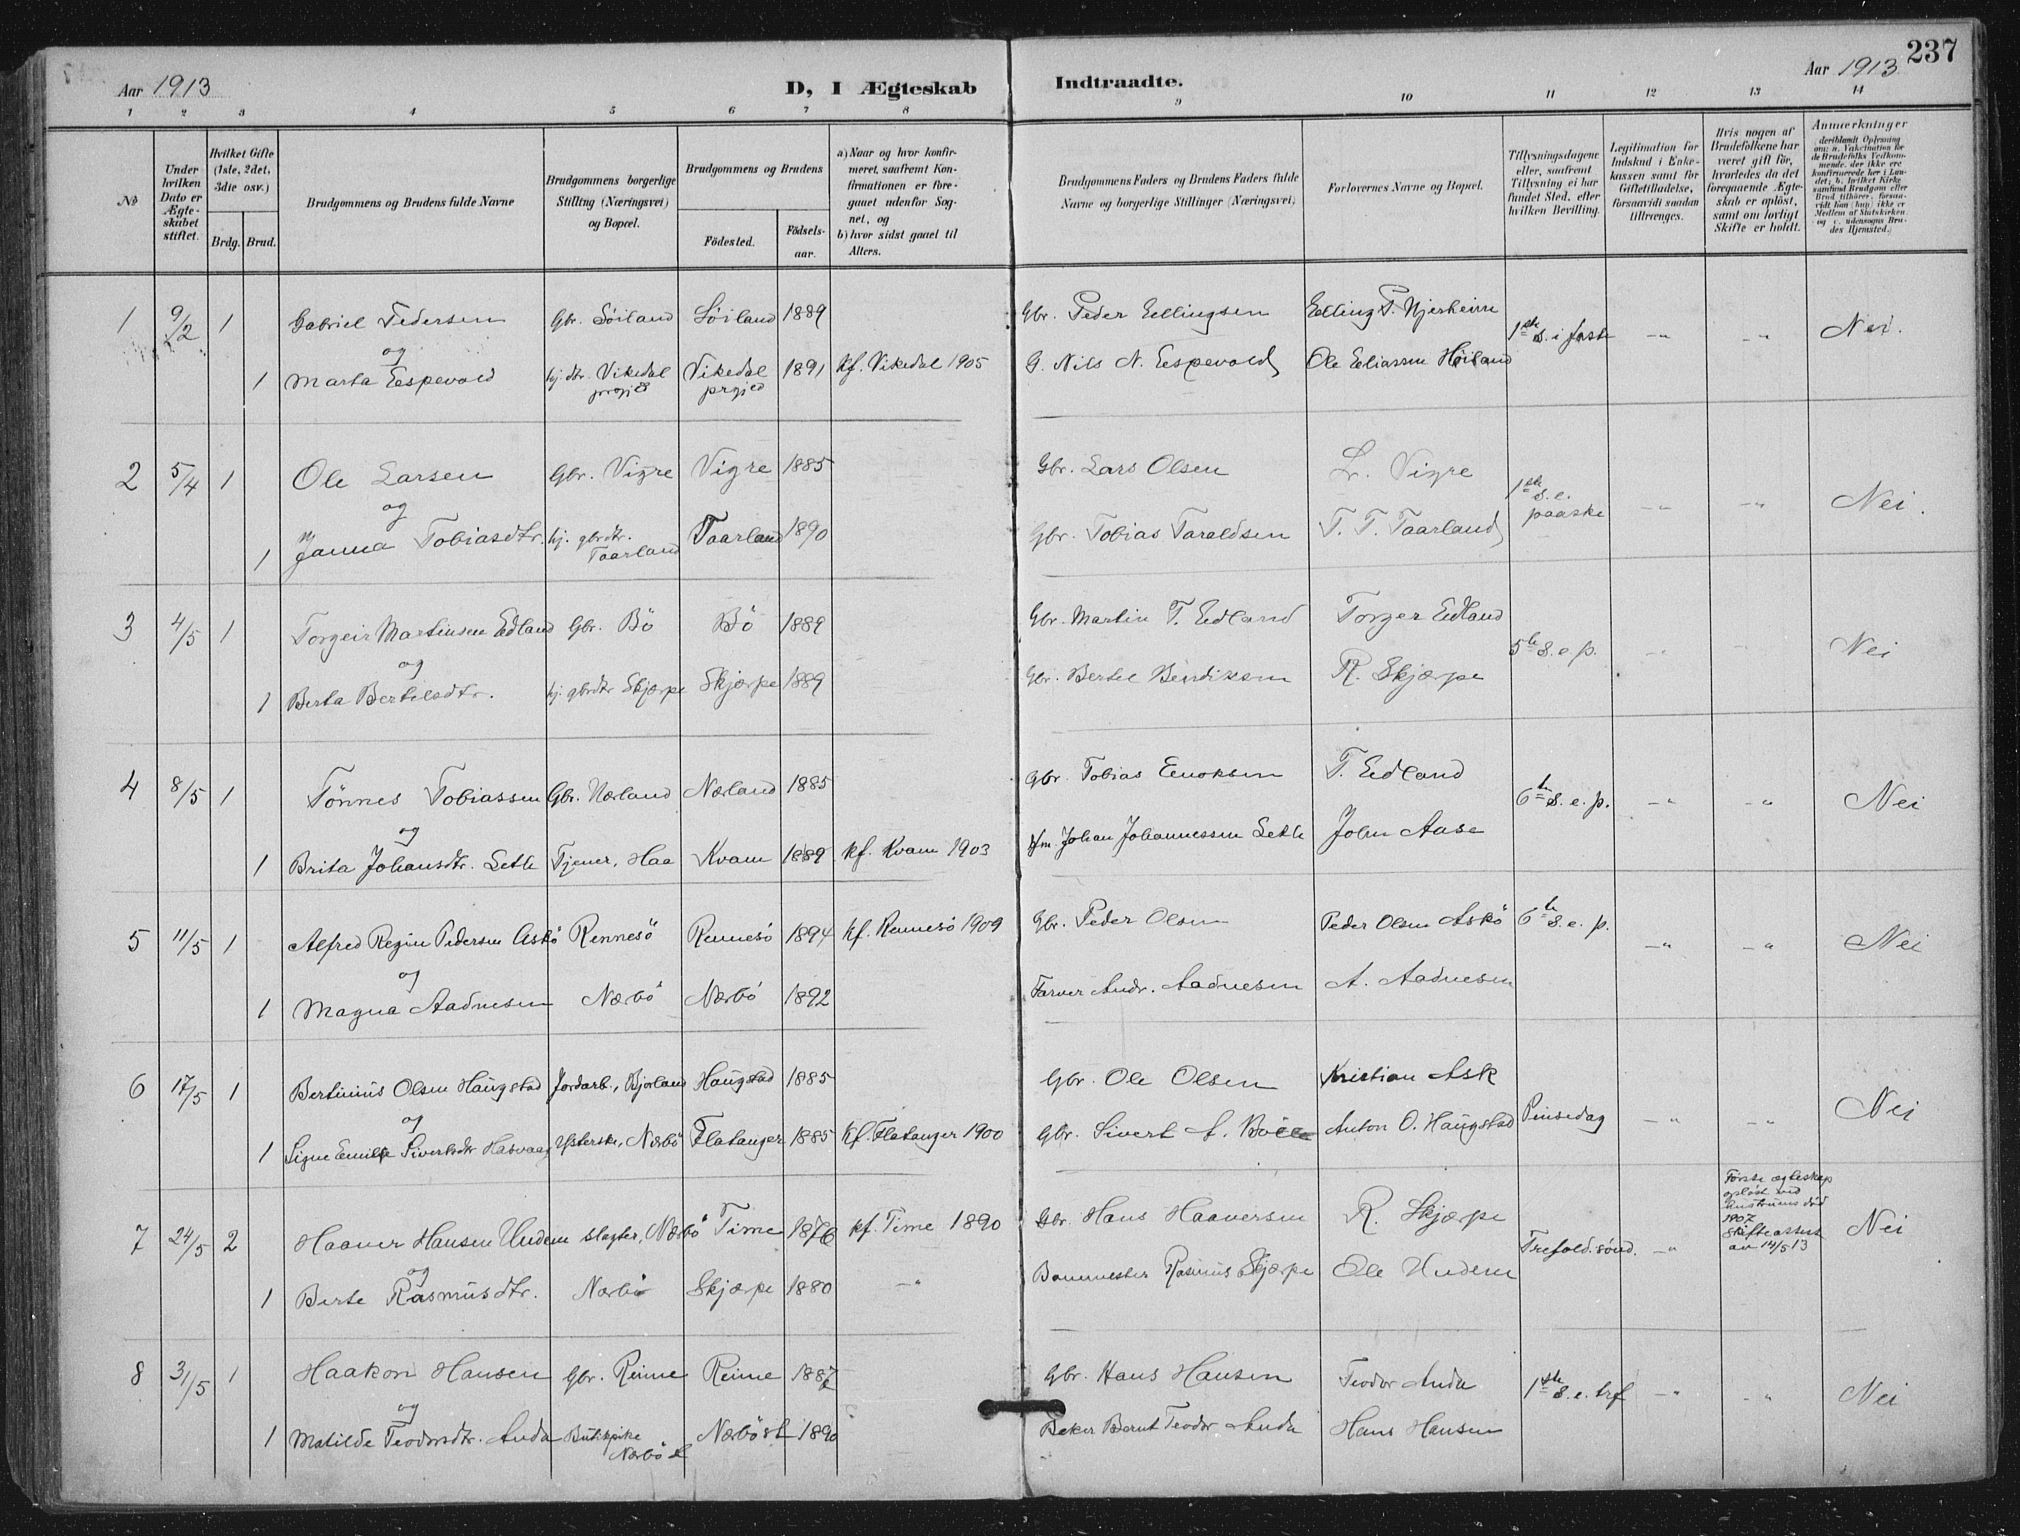 Aar 1913
D, I Ægteskab Indtraadte.
Aar 1913 237
1 2 3 4 5 6 7 8 9 10 11 12 13 14
No
Under hvilken Dato er Ægteskabet stiftet.
Hvilket Gifte (1ste, 2det, 3die osv.)
Brdg. Brud.
Brudgommens og Brudens fulde Navne
Brudgommens borgerlige Stilling (Næringsvei) og Bopæl.
Brudgommens og Brudens
Fødested. Fødselsaar.
a) Naar og hvor konfirmeret, saafremt Konfirmationen er foregaaet udenfor Sognet, og
b) hvor sidst gaaet til Alters.
Brudgommens Faders og Brudens Faders fulde Navne og borgerlige Stillinger (Næringsvei)
Forlovernes Navne og Bopæl.
Tillysningsdagene eller, saafremt Tillysning ei har fundet Sted, efter hvilken Bevilling.
Legitimation for Indskud i Enkekassen samt for Giftetilladelse, forsaavidi saadan tiltrænges.
Hvis nogen af Brudefolkene har været gift før, hvorledes da det foregaaende Ægteskab er opløst, samt om lovligt Skifte er holdt.
Anmerkninger
deriblandt Oplysning om: a. Vakcination for de Brudefolks Vedkommende, der ikke ere konfirmerede her i Landet; b. hvilket Kirkesamfund Brudgom eller Brud tilhører, forsaavidt han (hun) ikke er Medlem af Statskirken, og c. udensogns Brudes Hjemsted.)
1 9/2 1 Gabriel Pedersen Gbr. Söiland Söiland 1889 Gbr. Peder Eellingsen Eelling P. Njerheim 1ste S. i faste -"- -"- Nei.
og
1 Marta Eespevold hj. dtr. Vikedal prgjed Vikedal prgjed 1891 kf. Vikedal 1905 G. Nils N. Eespevold Ole Eeliassen Høiland
2 5/4 1 Ole Larsen Gbr. Vigre Vigre 1885 Gbr. Lars Olsen L. Vigre 1ste S. e. paaske -"- -"- Nei.
og
1 Janna Tobiasdtr. hj. gbrdtr. Taarland Taarland 1890 Gbr. Tobias Taraldsen T. T. Taarland
3 4/5 1 Torgeir Martinsen Edland Gbr. Bö Bö 1889 Gbr. Martin T. Edland Torger Edland 5te S. e. p. -"- -"- Nei
og
1 Berta Bertelsdtr. hj. gbrdtr Skjærpe Skjærpe 1889 Gbr. Bertel Bendiksen R. Skjærpe
4 8/5 1 Tönnes Tobiassen Gbr. Nærland Nærland 1885 Gbr. Tobias Eenoksen T. Edland 6te S. e. p. -"- -"- Nei
og
1 Brita Johansdtr. Sette Tjener, Haa Kvam 1889 kf. Kvam 1903 Hm. Johan Johannessen Sette John Aase
5 11/5 1 Alfred Regin Pedersen Askö Rennesö Rennesö 1894 kf. Rennesö 1909 Gbr. Peder Olsen Peder Olsen Askö 6te S. e. p. -"- -"- Nei
og
1 Magna Aadnesen Nærbö Nærbö 1892 Farver Andr. Aadnesen A. Aadnesen
6 17/5 1 Bertinius Olsen Haugstad Jordarb., Bjorland Haugstad 1885 Gbr. Ole Olsen Kristian Ask Pinsedag -"- -"- Nei
og
1 Signe Emilie Sivertsdtr Hasvaag Ysterske, Nærbö Flatanger 1885 Kf. Flatanger 1900 Gbr. Sivert A. Anton O. Haugstad
7 24/5 2 Haaver Hansen Undem slagter, Nærbö Time 1876 kf. Time 1890 Gbr. Hans Haaversen R. Skjærpe Trefold. sönd. -"- Förste egteskap oplöst ved hustruens död 1907 Skifteattest av 14/5 13 Nei
og
1 Berte Rasmusdtr. Nærbö Skjærpe 1880 -"- Banemester Rasmus Skjærpe Ole Undem
8 31/5 1 Haakon Hansen Gbr. Reime Reime 1887 Gbr. Hans Hansen Teodor Anda 1ste S. e. trf -"- -"- Nei
og
1 Matilde Teodorsdtr. Anda Butikpike Nærbö st Nærbö st 1890 Beker Bernt Teodor Anda Hans Hansen